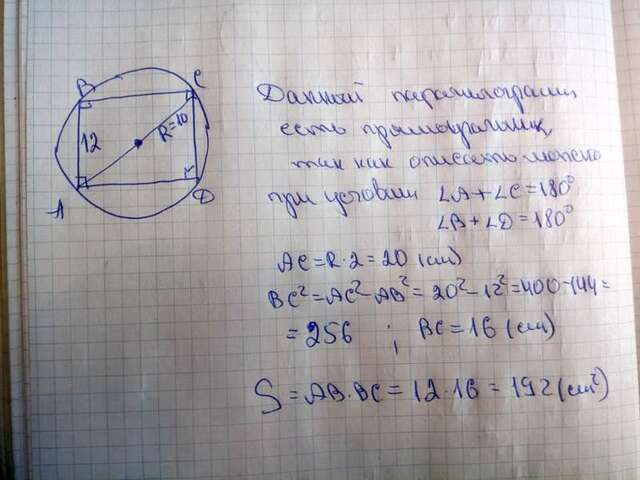 B
C
12
R=10
A
D
Данный параллелограмм
есть прямоугольник,
так как описать можно
при условии ∠A+∠C=180°
∠B+∠D=180°
AC=R·2=20 (см)
BC²=AC²-AB²=20²-12²=400-144=
=256 ; BC=16 (см)
S=AB·BC=12·16=192(см²)